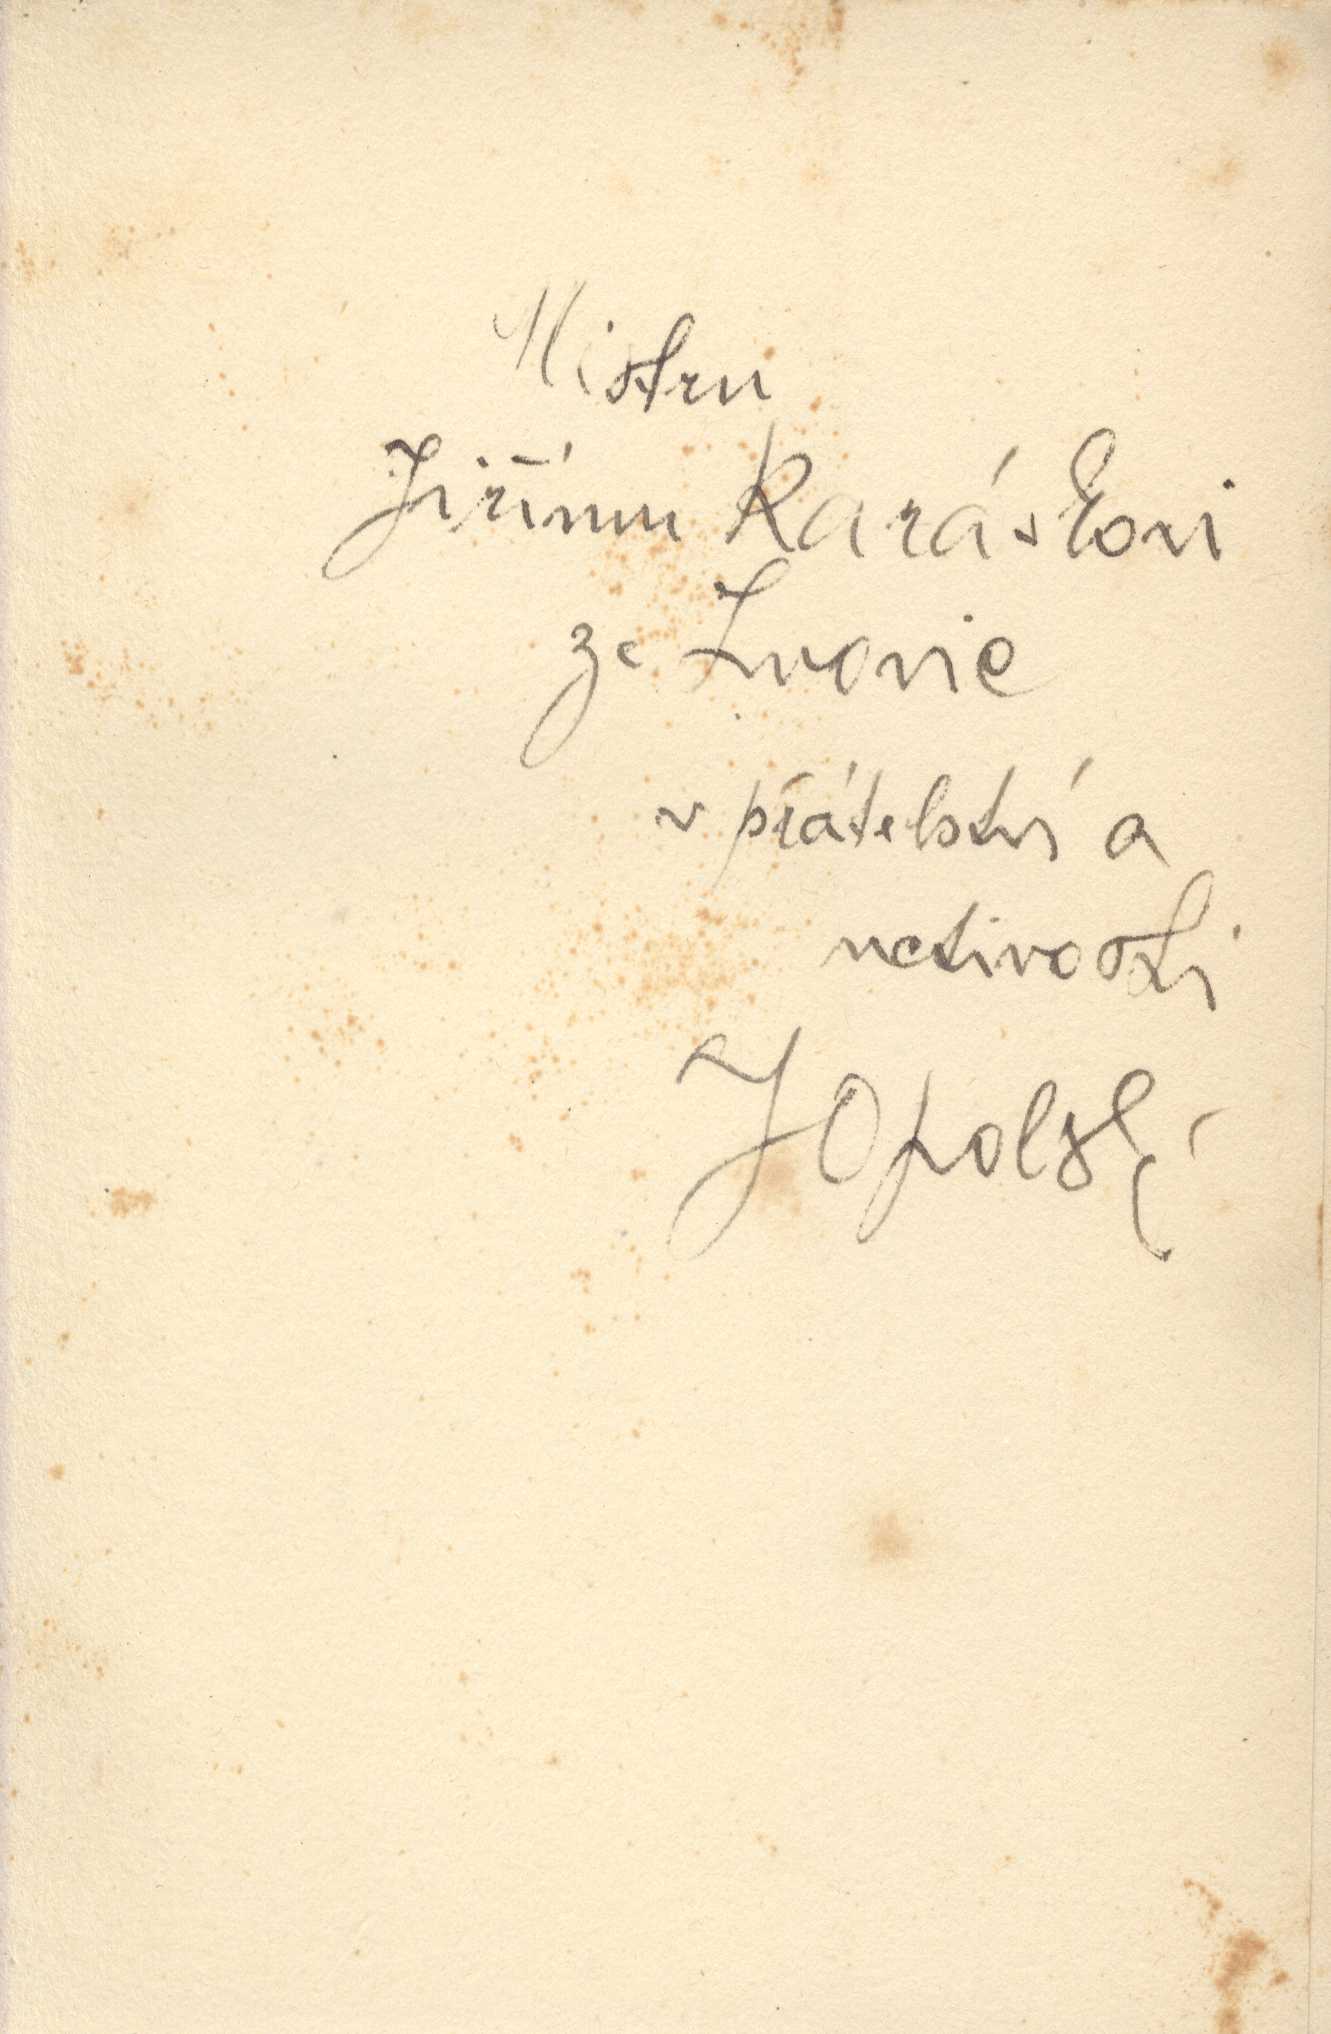 Mistru
Jiřímu Karáskovi
ze Lvovic
v přátelství a
uctivosti
JOpolský